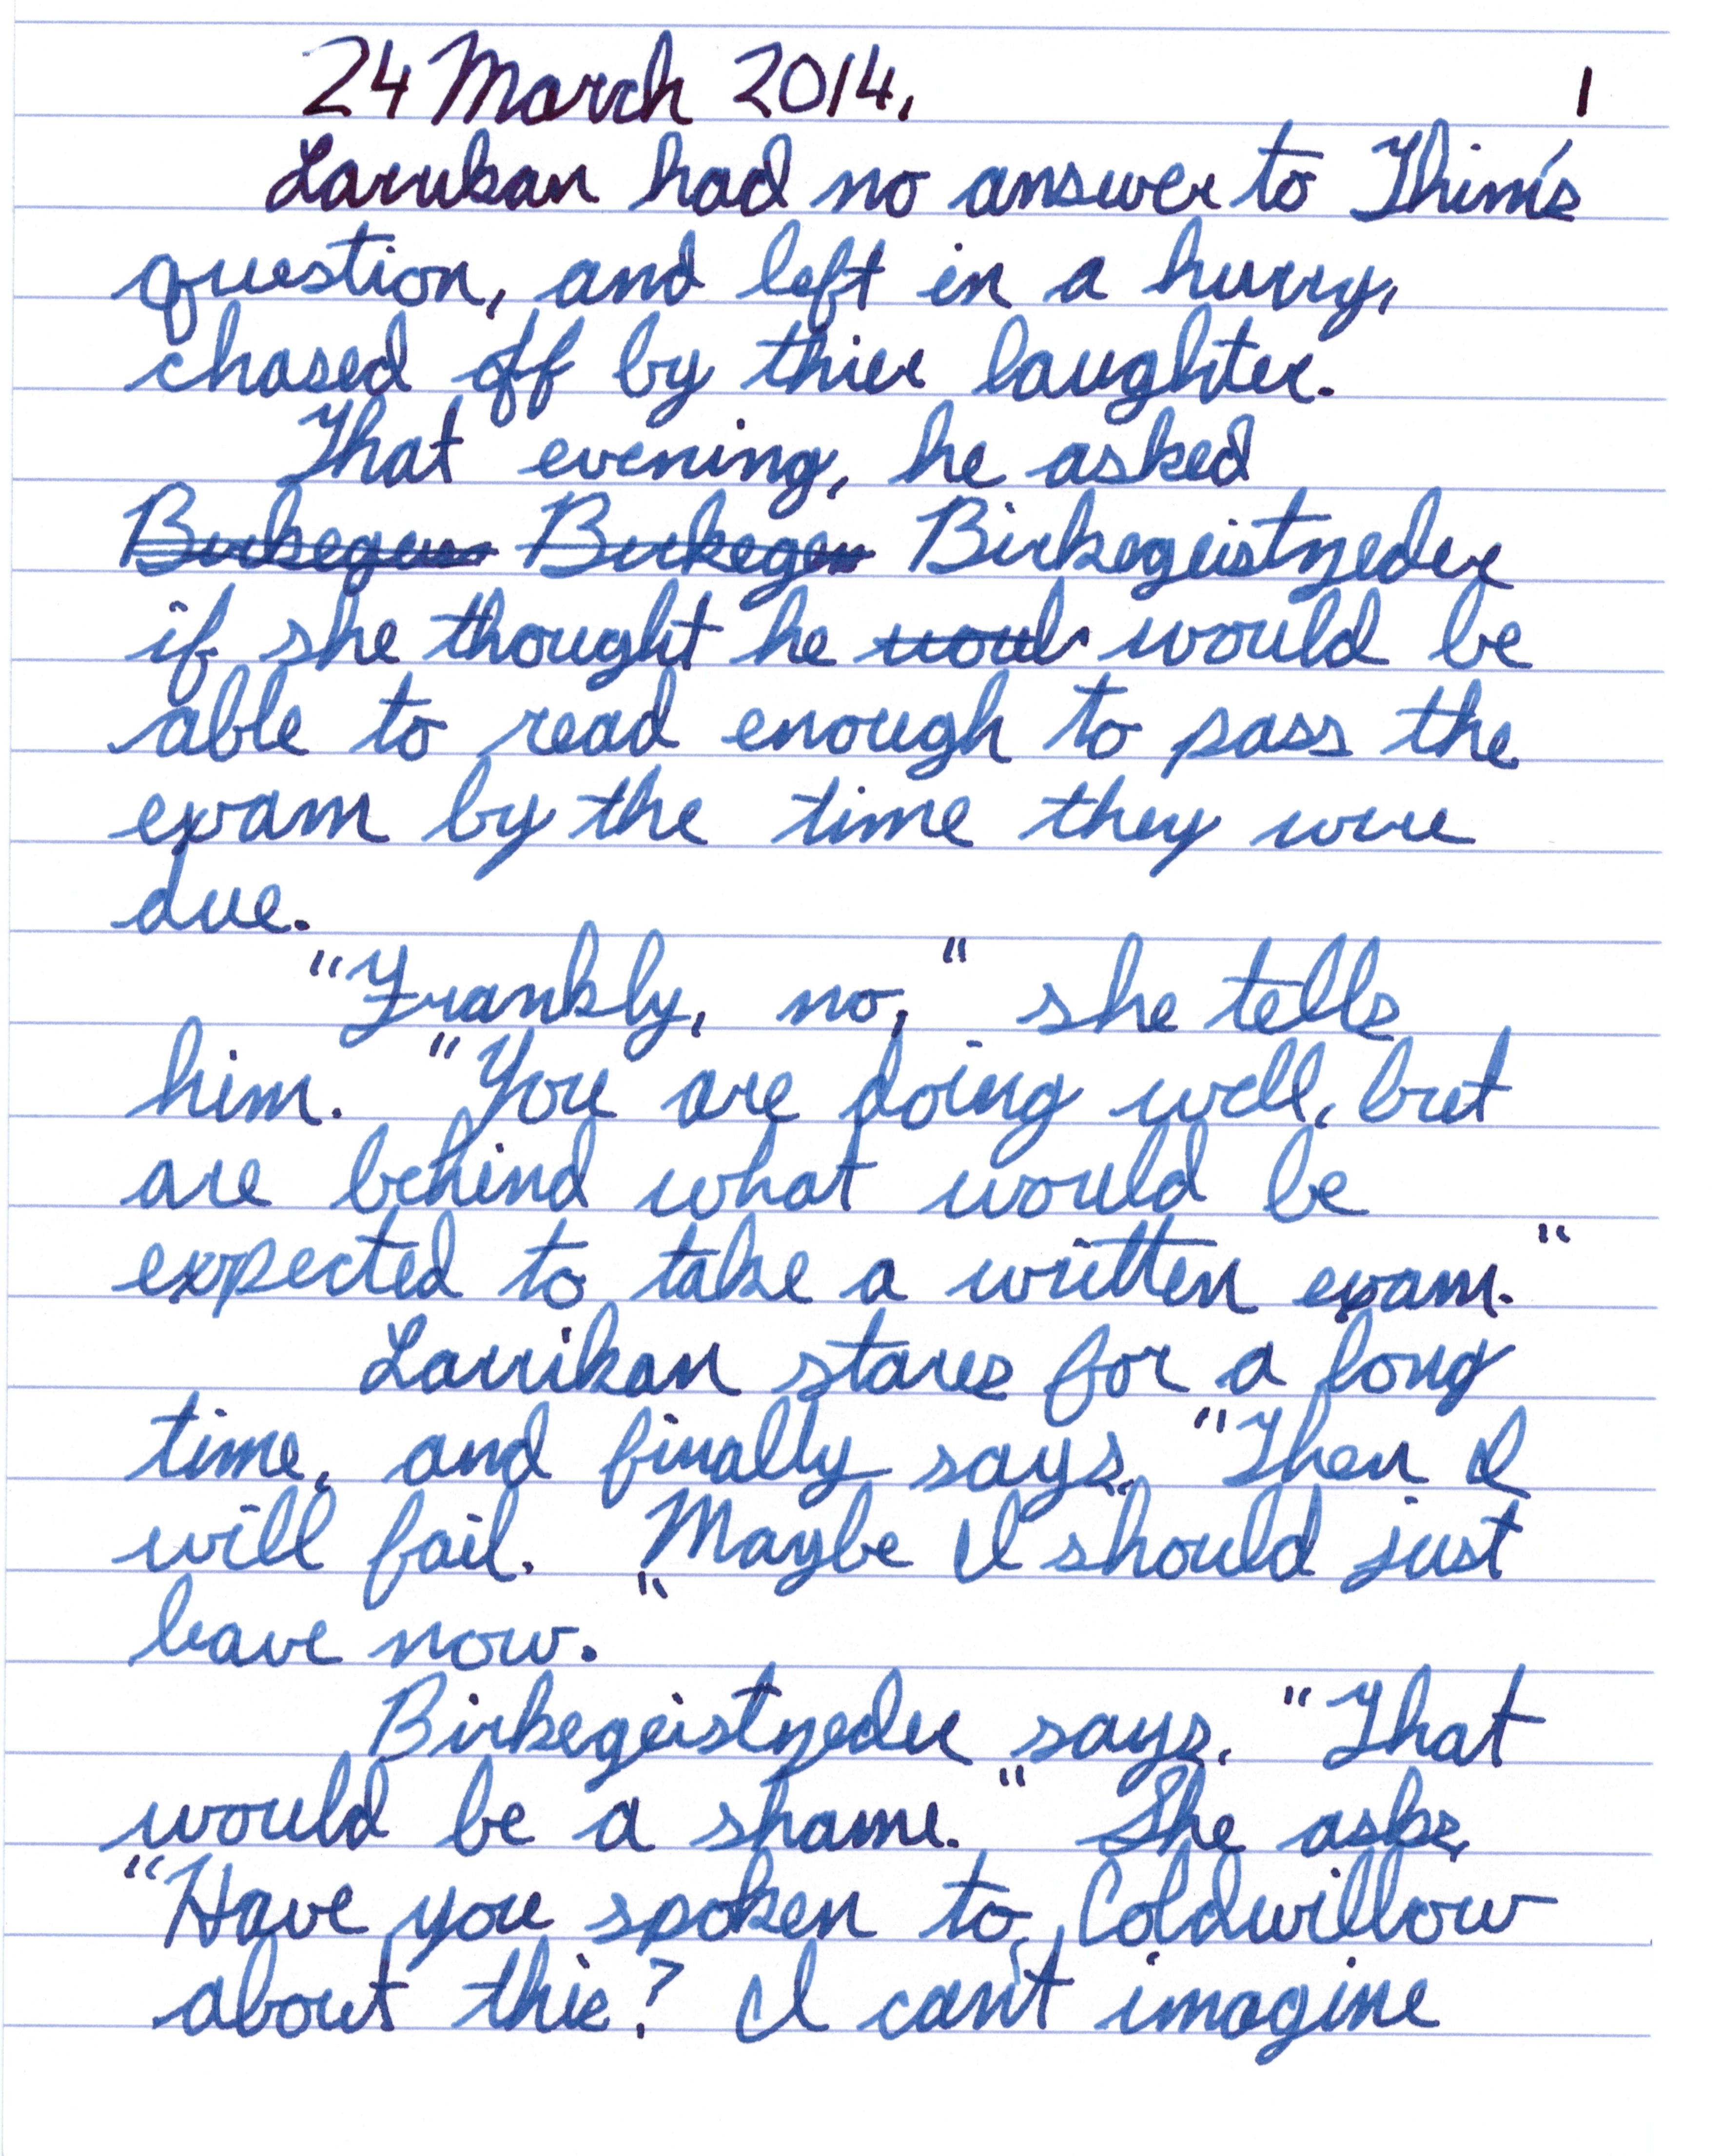 24 March 2014. 1
Larrikan had no answer to Thim's
question, and left in a hurry,
chased off by thier laughter.
That evening, he asked
Birkegeistzeder
if she thought he would be
able to read enough to pass the
exam by the time they were
due.
"Frankly, no," she tells
him. "You are doing well, but
are behind what would be
expected to take a written exam."
Larrikan stares for a long
time, and finally says, "Then I
will fail. "Maybe I should just
leave now.
Birkegeistzeder says, "That
would be a shame." She asks,
"Have you spoken to Coldwillow
about this? I can't imagine